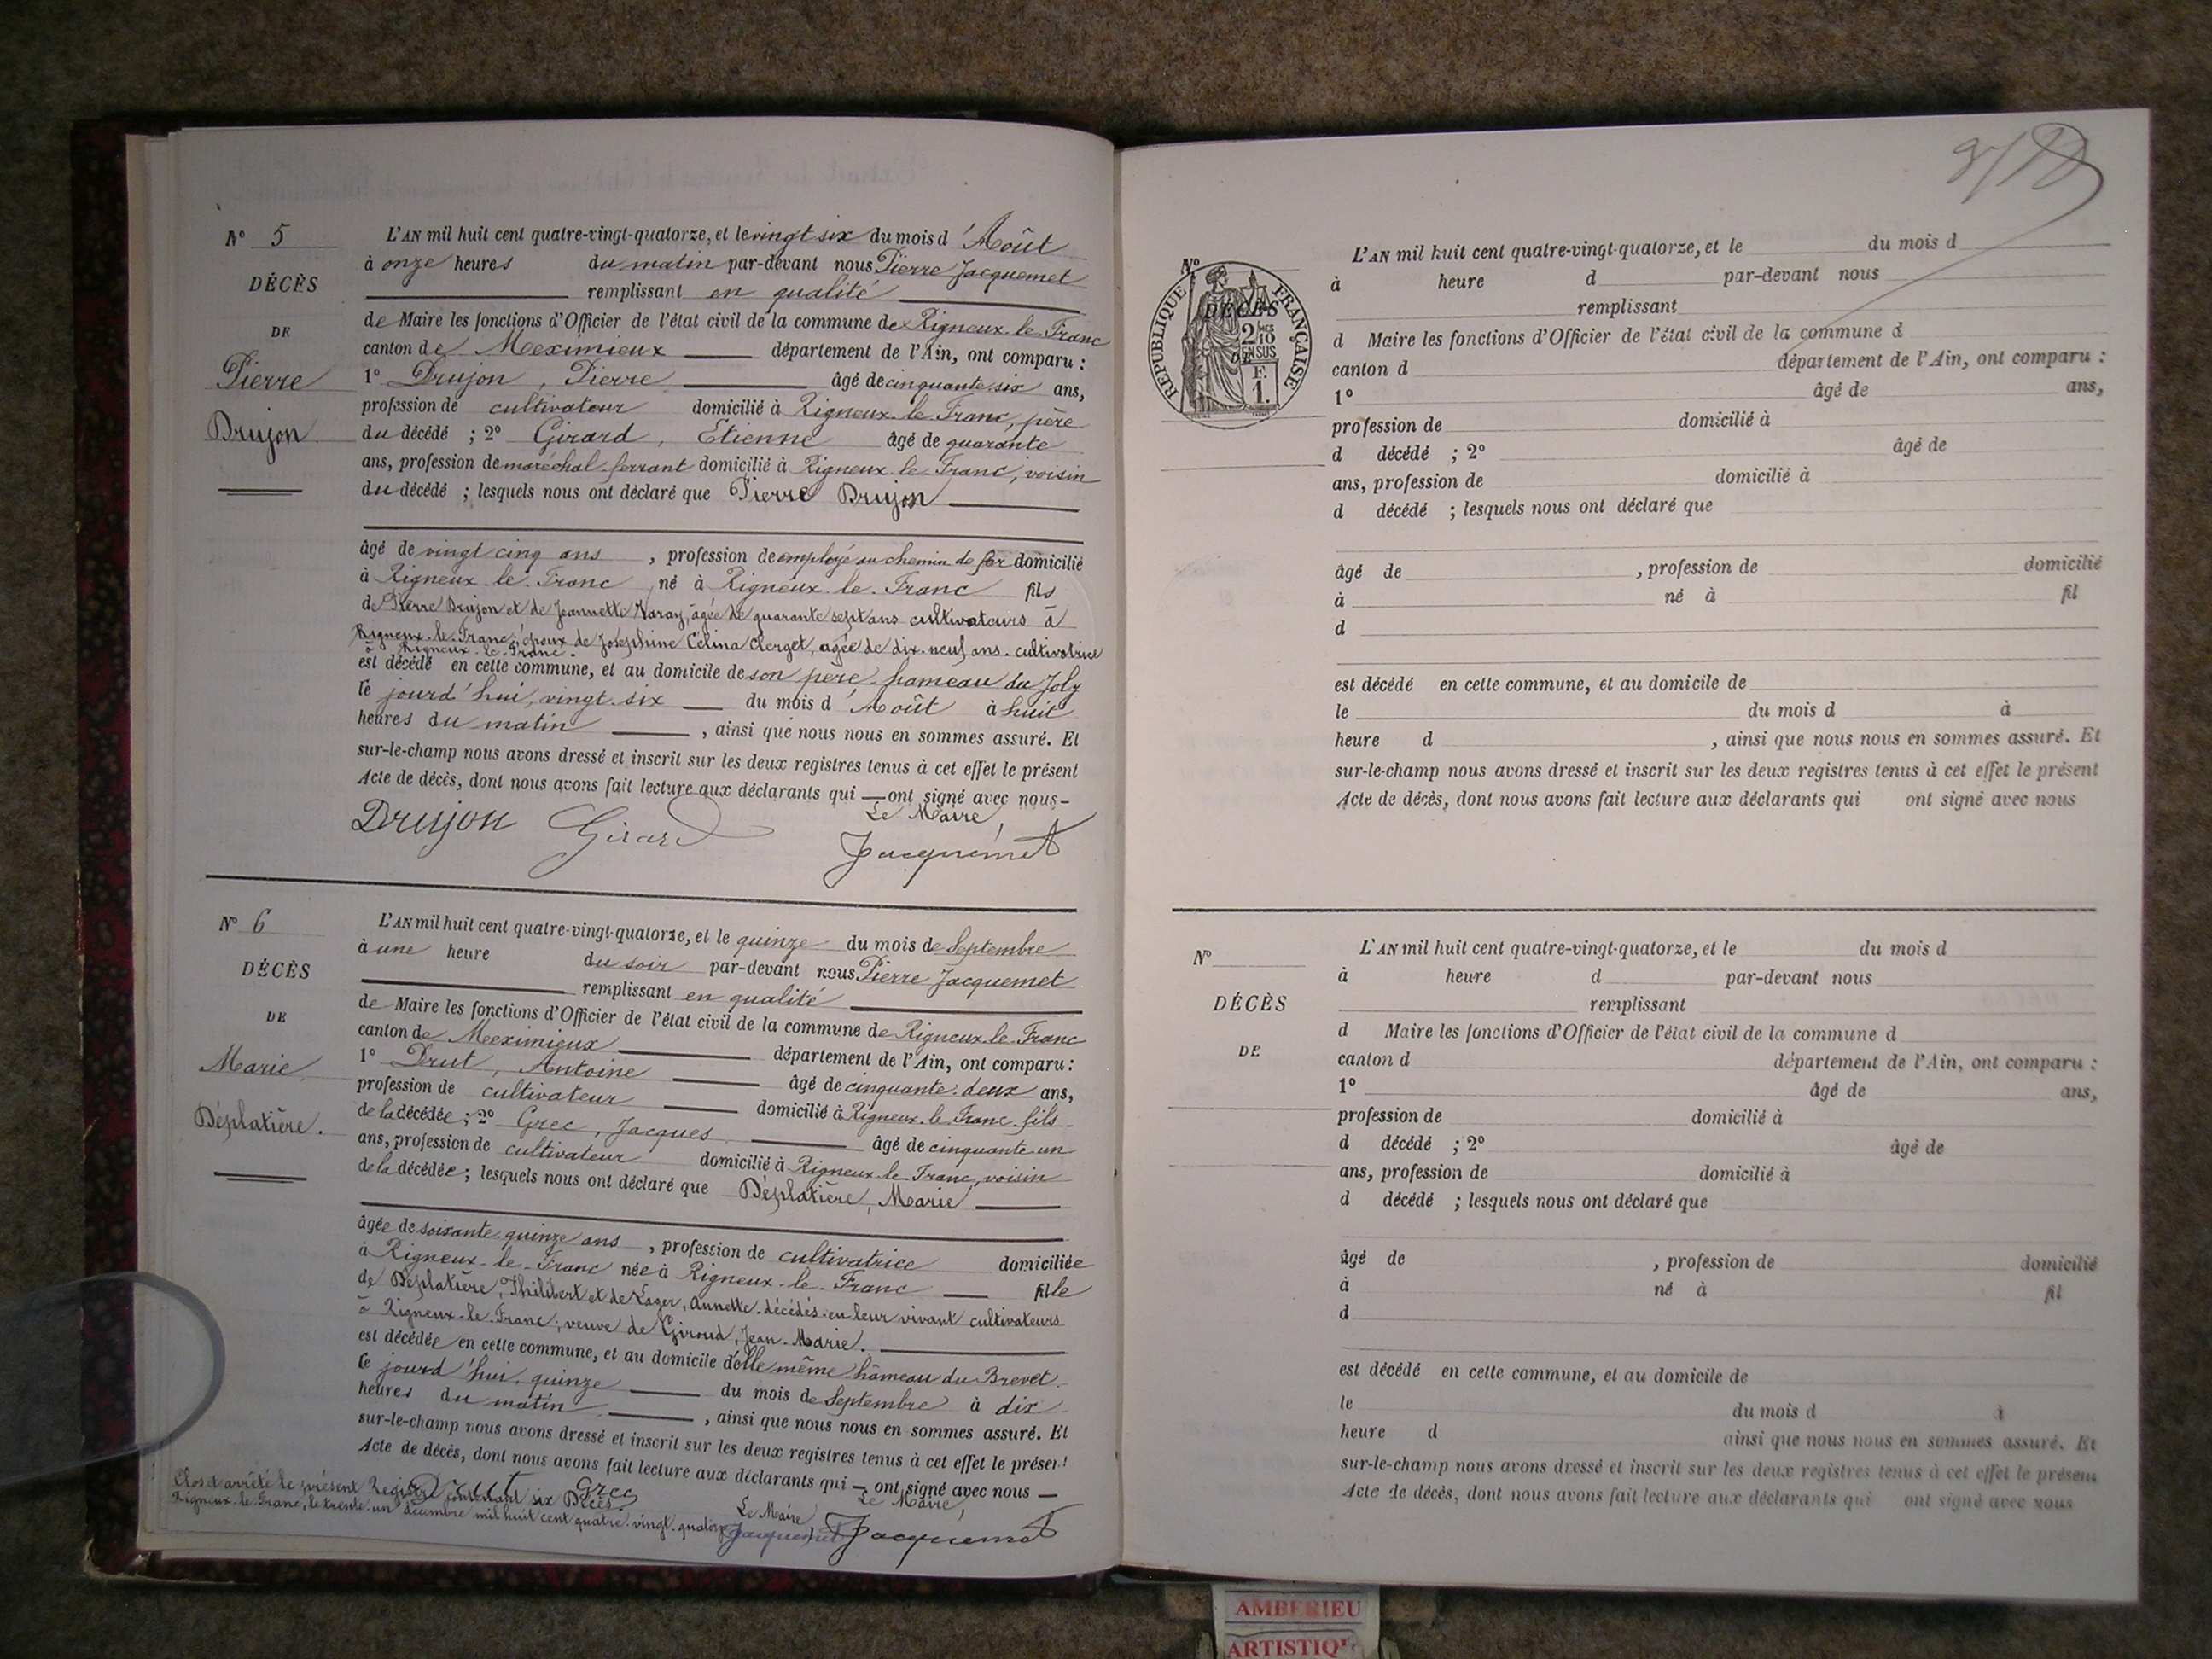 N° 5
DÉCÈS
DE
Pierre
Drujon
L'AN mil huit cent quatre-vingt-quatorze, et le vingt six du mois d'Août
à onze heures du matin par-devant nous Pierre Jacquemet
remplissant en qualité
de Maire les fonctions d'Officier de l'état civil de la commune de Rigneux-le-Franc
canton de Meximieux département de l'Ain, ont comparu :
1° Drujon, Pierre âgé de cinquante six ans,
profession de cultivateur domicilié à Rigneux-le-Franc, père
du décédé ; 2° Girard, Etienne âgé de quarante
ans, profession de maréchal-ferrant domicilié à Rigneux-le-Franc, voisin
du décédé ; lesquels nous ont déclaré que Pierre Drujon
âgé de vingt cinq ans, profession de employé au chemin de fer domicilié
à Rigneux-le-Franc né à Rigneux-le-Franc fils
de Pierre Drujon et de Jeannette âgée de quarante sept ans cultivateurs à
Rigneux-le-Franc; époux de Joséphine Célina Clerget, agée de dix-neuf ans. cultivatrice
à Rigneux-le-Franc.
est décédé en cette commune, et au domicile de son père hameau du Joly
le jourd'hui, vingt-six du mois d'Août à huit
heures du matin, ainsi que nous nous en sommes assuré. Et
sur-le-champ nous avons dressé et inscrit sur les deux registres tenus à cet effet le présent
Acte de décès, dont nous avons fait lecture aux déclarants qui — ont signé avec nous -
Le Maire,
Drujon Girard Jacquemet
N° 6
DÉCÈS
DE
Marie
Déplatière.
L'AN mil huit cent quatre-vingt-quatorze, et le quinze du mois de Septembre
à une heure du soir par-devant nous Pierre Jacquemet
remplissant en qualité
de Maire les fonctions d'Officier de l'état civil de la commune de Rigneux-le-Franc
canton de Meximieux département de l'Ain, ont comparu :
1° Drut, Antoine âgé de cinquante-deux ans,
profession de cultivateur domicilié à Rigneux-le-Franc fils
de la décédée ; 2° Grec, Jacques âgé de cinquante un
ans, profession de cultivateur domicilié à Rigneux-le-Franc, voisin
de la décédée ; lesquels nous ont déclaré que Déplatière, Marie
âgée de soixante-quinze ans, profession de cultivatrice domiciliée
à Rigneux-le-Franc née à Rigneux-le-Franc fille
de Déplatière, Philibert et de Lager, Annette décédés en leur vivant cultivateurs
à Rigneux-le-Franc; veuve de Giroud, Jean-Marie.
est décédée en cette commune, et au domicile d'elle même hâmeau du Brevet
le jourd'hui, quinze du mois de Septembre à dix
heures du matin, ainsi que nous nous en sommes assuré. Et
sur-le-champ nous avons dressé et inscrit sur les deux registres tenus à cet effet le présent
Acte de décès, dont nous avons fait lecture aux déclarants qui — ont signé avec nous —
Drut Grec Le Maire,
Jacquemet
Clos et arrêté le présent Registre contenant six Décès.
Rigneux-le-Franc, le trente-un décembre mil huit cent quatre-vingt-quatorze
Le Maire
Jacquemet
RÉPUBLIQUE FRANÇAISE
2 10 MES
EN SUS
F.
1.
N°
DÉCÈS
DE
L'AN mil huit cent quatre-vingt-quatorze, et le du mois d
à heure d par-devant nous
remplissant
d Maire les fonctions d'Officier de l'état civil de la commune d
canton d département de l'Ain, ont comparu :
1° âgé de ans,
profession de domicilié à
d décédé ; 2° âgé de
ans, profession de domicilié à
d décédé ; lesquels nous ont déclaré que
âgé de , profession de domicilié
à né à fil
d
est décédé en cette commune, et au domicile de
le du mois d à
heure d , ainsi que nous nous en sommes assuré. Et
sur-le-champ nous avons dressé et inscrit sur les deux registres tenus à cet effet le présent
Acte de décès, dont nous avons fait lecture aux déclarants qui ont signé avec nous
N°
DÉCÈS
DE
L'AN mil huit cent quatre-vingt-quatorze, et le du mois d
à heure d par-devant nous
remplissant
d Maire les fonctions d'Officier de l'état civil de la commune d
canton d département de l'Ain, ont comparu :
1° âgé de ans,
profession de domicilié à
d décédé ; 2° âgé de
ans, profession de domicilié à
d décédé ; lesquels nous ont déclaré que
âgé de , profession de domicilié
à né à fil
d
est décédé en cette commune, et au domicile de
le du mois d à
heure d ainsi que nous nous en sommes assuré. Et
sur-le-champ nous avons dressé et inscrit sur les deux registres tenus à cet effet le présent
Acte de décès, dont nous avons fait lecture aux déclarants qui ont signé avec nous
AMBERIEU
ARTISTIQUE